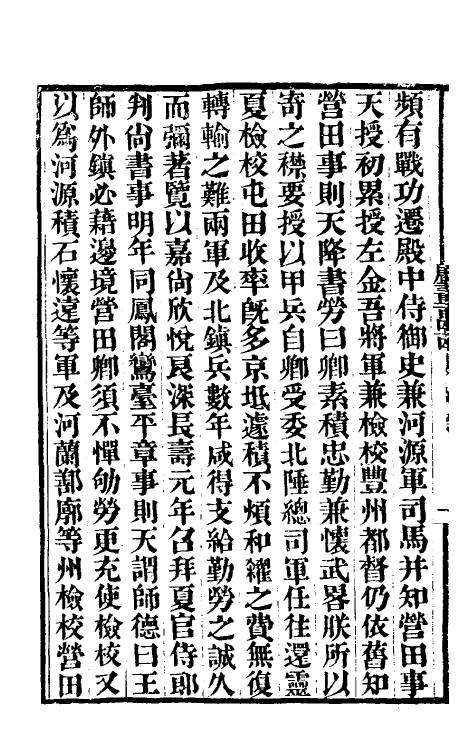 頻有戰功遷殿中侍御史兼河源軍司馬并知營田事
天授初累授左金吾將軍兼檢校豐州都督仍依舊知
營田事則天降書勞曰卿素積忠勤兼懷武畧朕所以
寄之襟要授以甲兵自卿受委北陲總司軍任往還靈
夏檢校屯田收率旣多京坻遽積不煩和糴之費無復
轉輸之難兩軍及北鎮兵數年咸得支給勤勞之誠久
而彌著覽以嘉尚欣悅良深長壽元年召拜夏官侍郎
判尚書事明年同鳳閣鸞臺平章事則天謂師德曰王
師外鎮必藉邊境營田卿須不憚劬勞更充使檢校又
以爲河源積石懷遠等軍及河蘭鄯廓等州檢校營田